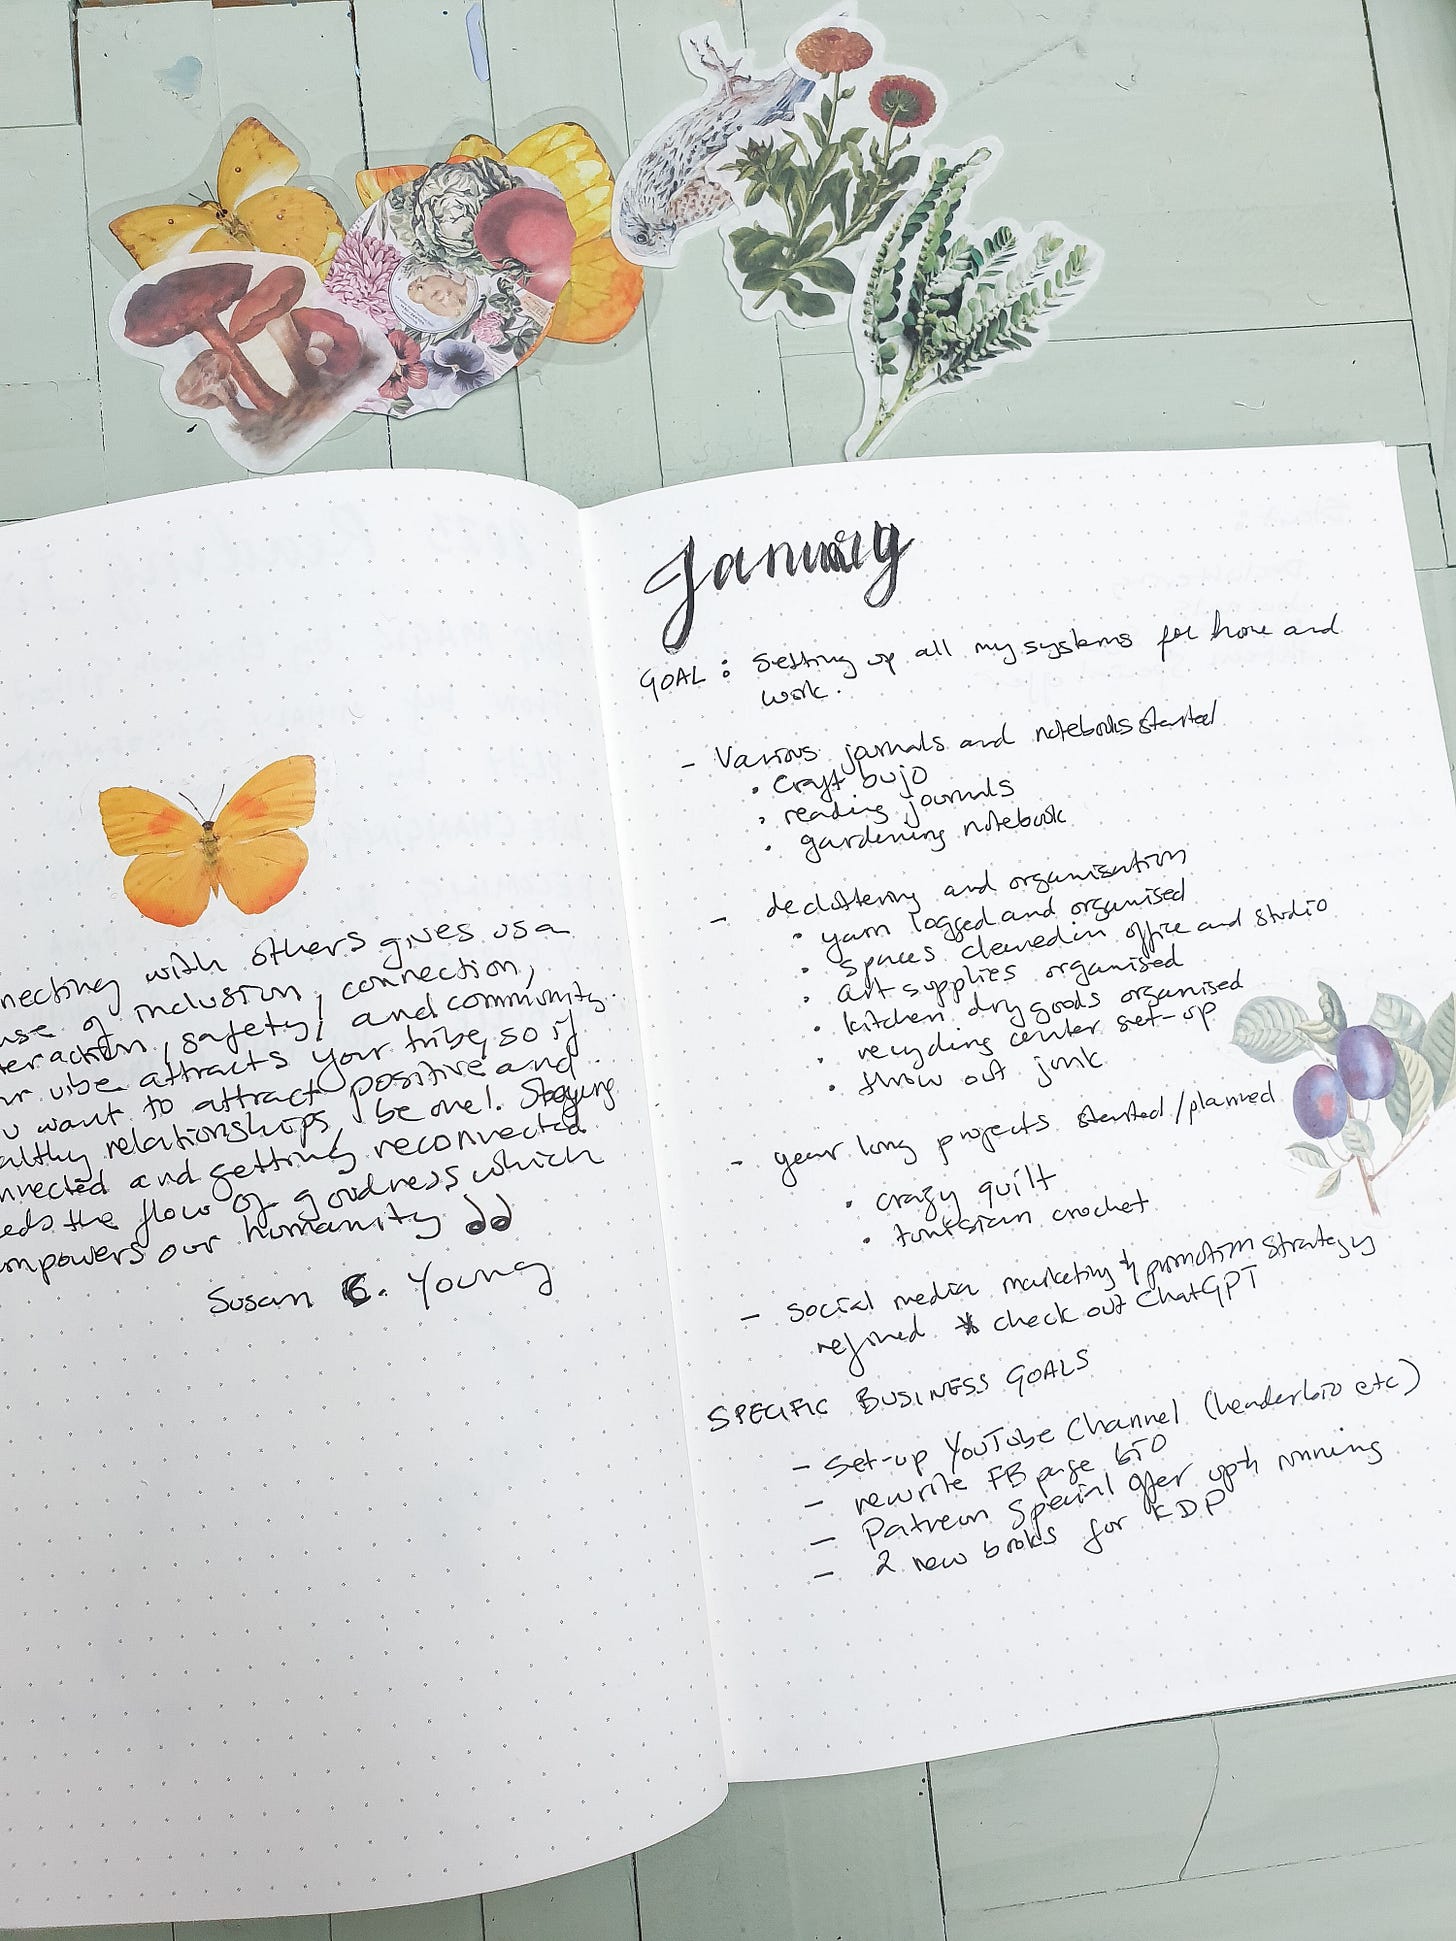 necting with others gives us a
nse of inclusion, connection,
teraction, safety, and community.
ur vibe attracts your tribe, so if
u want to attract positive and
althy relationships, be one!. Staying
nnected and getting reconnected
eeds the flow of goodness which
mpowers our humanity
Susan C. Young
January
GOAL : Setting up all my systems for home and
work.
- Various journals and notebooks started
• Craft bujo
• reading journals
• gardening notebook
- decluttering and organisation
• yarn logged and organised
• Spaces cleared in office and studio
• art supplies organised
• kitchen dry goods organised
• recycling center set-up
• throw out junk
- year long projects started/planned
• crazy quilt
• tunisian crochet
- Social media marketing & promotion strategy
refined * check out ChatGPT
SPECIFIC BUSINESS GOALS
- Set-up YouTube Channel (header bio etc)
- rewrite FB page bio
- Patreon Special offer up & running
- 2 new books for KDP